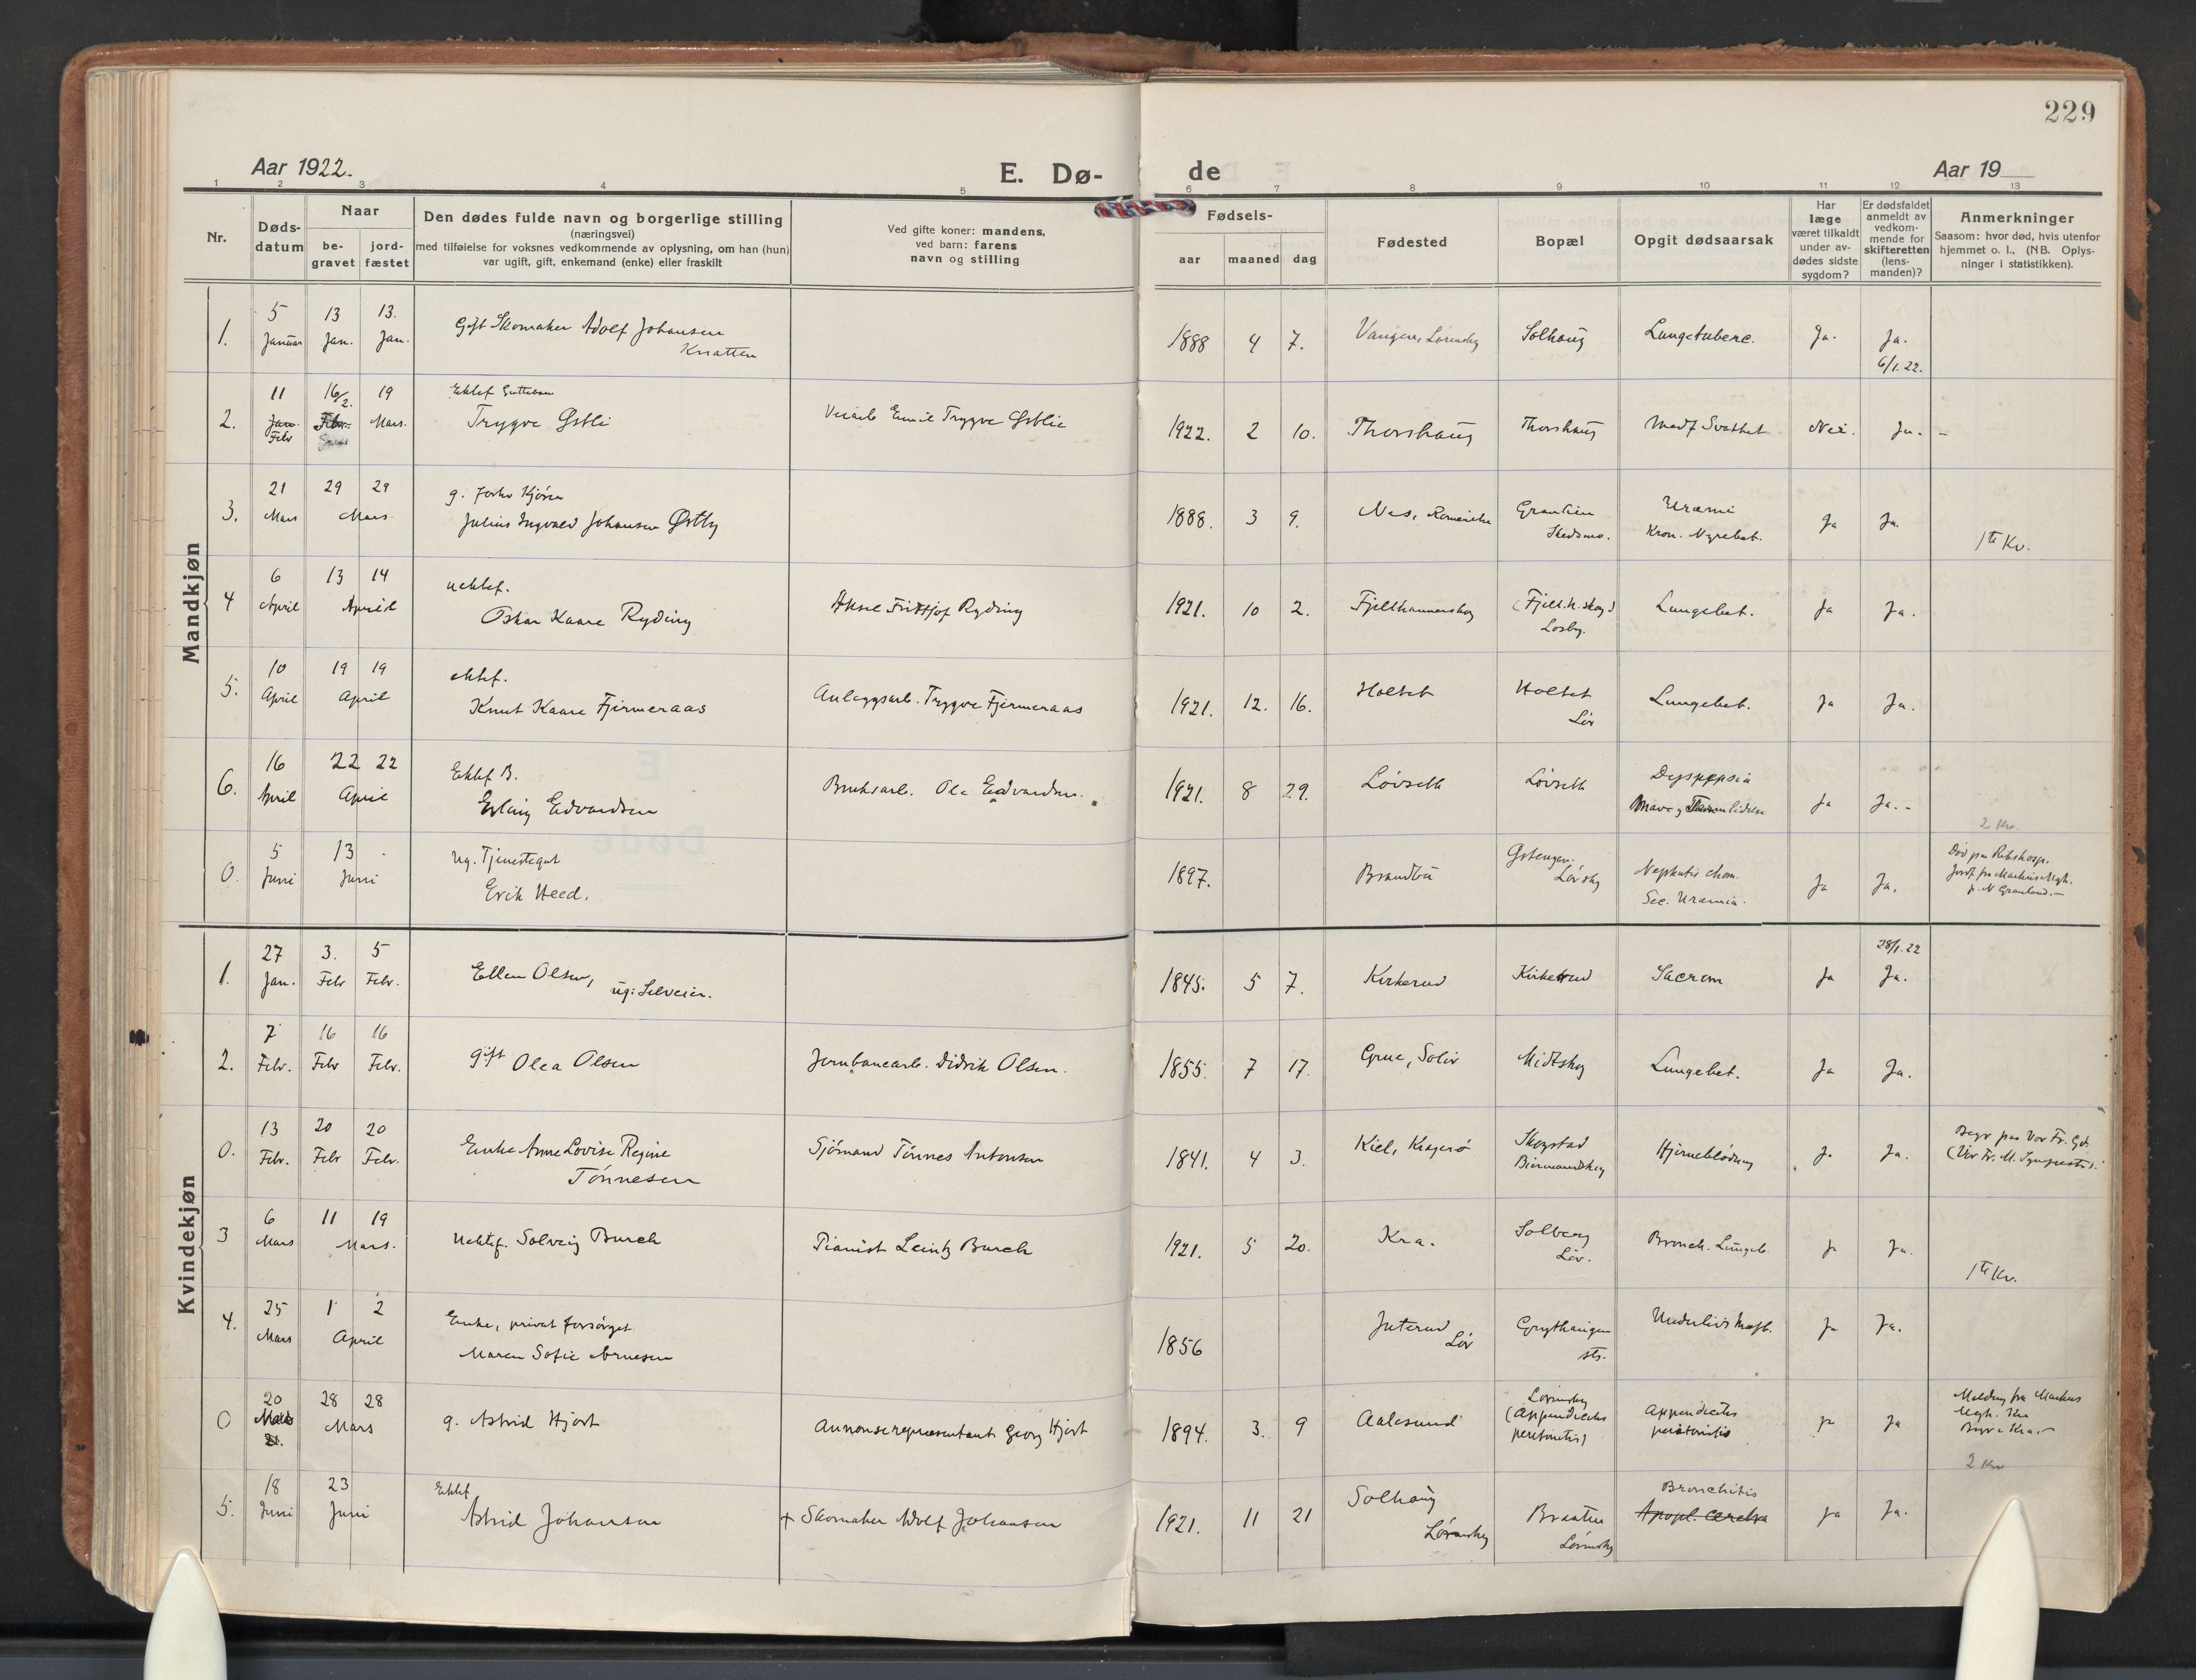 229
Aar 1922.
E. Dø-
de
Aar 19
1 2 3 4 5 6 7 8 9 10 11 12 13
Nr.
Døds-
datum
Naar
be-
gravet
jord-
fæstet
Den dødes fulde navn og borgerlige stilling
(næringsvei)
med tilføielse for voksnes vedkommende av oplysning, om han (hun)
var ugift, gift, enkemand (enke) eller fraskilt
Ved gifte koner: mandens,
ved barn: farens
navn og stilling
Fødsels-
aar maaned dag
Fødested
Bopæl
Opgit dødsaarsak
Har
læge
været tilkaldt
under av-
dødes sidste
sygdom?
Er dødsfaldet
anmeldt av
vedkom-
mende for
skifteretten
(lens-
manden)?
Anmerkninger
Saasom: hvor død, hvis utenfor
hjemmet o. l., (NB. Oplys-
ninger i statistikken).
Mandkjøn
5 13 13.
1. Januar Jan. Jan. Gift Skomaker Adolf Johansen
Knatten
1888 4 7. Vangen, Lørenskog Solhaug Lungetuberc. Ja. Ja.
6/1.22.
11 16/2. 19 Ektef Guttebarn
2. Jan. Febr Febr. Mars. Trygve Østli Veiarb Emil Trygve Østlie 1922. 2 10. Thorshaug Thorshaug Medf Svakhet Nei. Ja. -
21 29 29 g.
3. Mars Mars Julius Ingvald Johansen Østby
1888. 3 9. Nes, Romerike
Skedsmo. Uræmi
Kron. Nyrebet. Ja Ja.
1ste Kv.
6 13 14 uektef.
4 April April Oskar Kaare Ryding Aksel Frithjof Ryding 1921. 10 2. Fjellhammerskog (Fjellh.skog)
Losby. Lungebet. Ja Ja.
10 19 19 ektef.
5. April April Knut Kaare Fjermeraas Anleggsarb. Trygve Fjermeraas 1921. 12. 16. Holtet Holtet
Lør Lungebet. Ja Ja.
16 22 22 Ektef B.
6. April April Erling Edvardsen Bruksarb. Ole Edvardsen. 1921. 8 29. Løvseth Løvseth Dyspepsia
Ja Ja. -
2 Kv.
5 13 Ug. Tjenestegut
0. Juni Juni Erik Heed. 1897. Brandbu
Sec. Uræmia. Ja Ja.
Død paa Rikshosp.
Kvindekjøn
27 3. 5
1. Jan. Febr Febr. Ellen Olsen, ug: Selveier. 1845. 5 7. Kirkerud Kirkerud Ja Ja.
28/1.22
7 16 16
2. Febr. Febr Febr. gift Olea Olsen Jernbanearb. Didrik Olsen. 1855. 7 17. Grue, Solør Midtskog Lungebet. Ja Ja.
13 20 20
0. Febr. Febr Febr. Enke Anne Lovise Regine
Tønnesen Sjømand Tønnes Antonsen 1841. 4 3. Kiel, Kragerø Skogstad
Hjerneblødning Ja Ja.
Begr paa Vor Fr. Gd.
6 11 19
3 Mars Mars. Uektef. Solveig Burch Pianist Leintz Burch 1921. 5 20. Kra. Solberg
Lør. Bronch. Lungeb. Ja Ja.
1ste Kv.
25 1 2 Enke, privat forsørget
4. Mars April Maren Sofie Arnesen 1856 Juterud
Lør
sts. Underlivskræft. Ja Ja.
20 28 28
0 Mars 21. Mars g. Astrid Hjort Annonserepræsentant Georg Hjort 1894. 3. 9 Aalesund Lørenskog
(Appendicites
peritonitis) Appendicites
peritonitis Ja Ja
Melding fra Markus
Mgh. Kra
Begr i Kra
2 Kv
18 23 Ektef
5. Juni Juni Astrid Johansen + Skomaker Adolf Johansen 1921. 11 21 Solhaug
Lørenskog Braaten
Lørenskog Bronchitis
Apopl. cerebra Ja Ja.